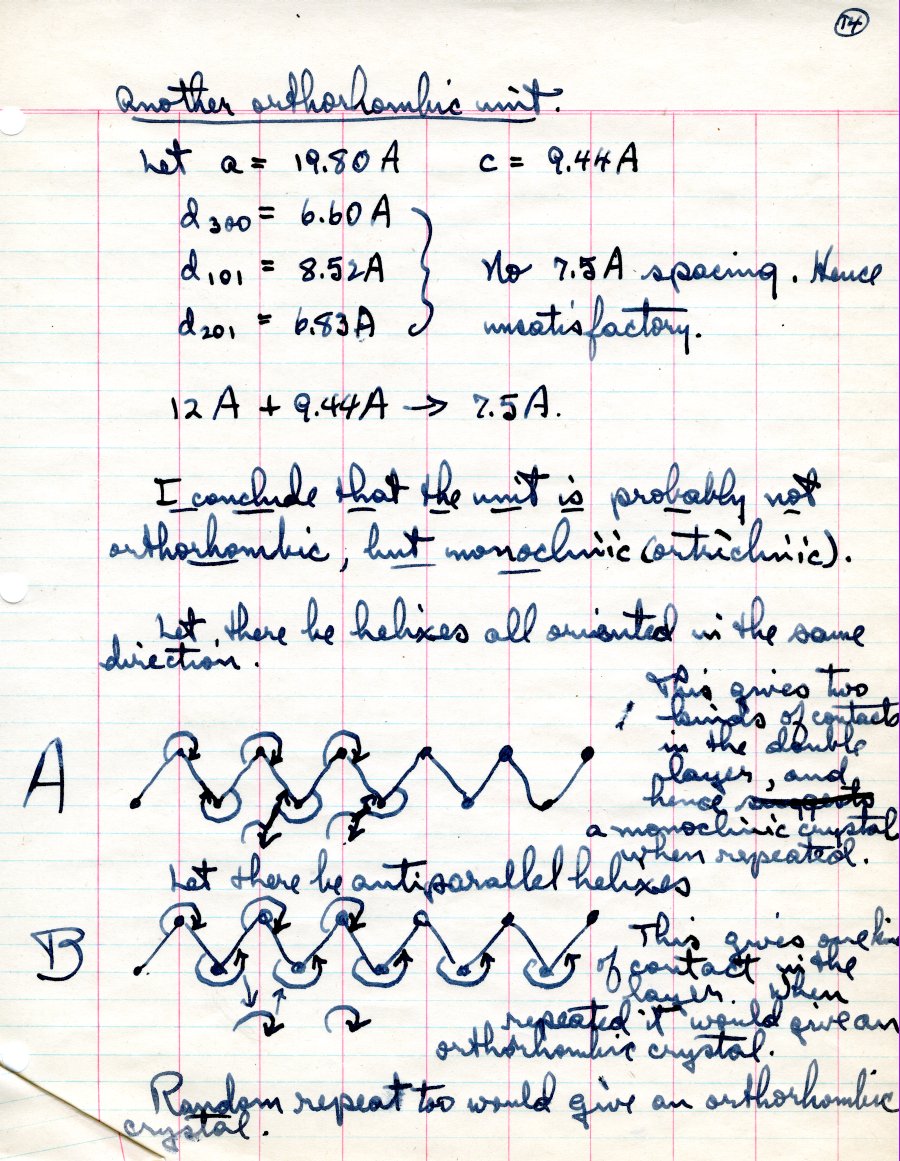 14
Another orthorhombic unit.
Let a = 19.80 A c = 9.44 A
d300 = 6.60 A
d101 = 8.52 A No 7.5 A spacing. Hence
d201 = 6.83 A unsatisfactory.
12 A + 9.44 A → 7.5 A.
I conclude that the unit is probably not
orthorhombic, but monoclinic (or triclinic).
Let there be helixes all oriented in the same
direction.
This gives two
kinds of contacts
in the double
layer, and
hence suggests
a monoclinic crystal
when repeated.
A
Let there be antiparallel helixes
B
This gives one kin
of contact in the
layer. When
repeated it would give an
orthorhombic crystal.
Random repeat too would give an orthorhombic
crystal.